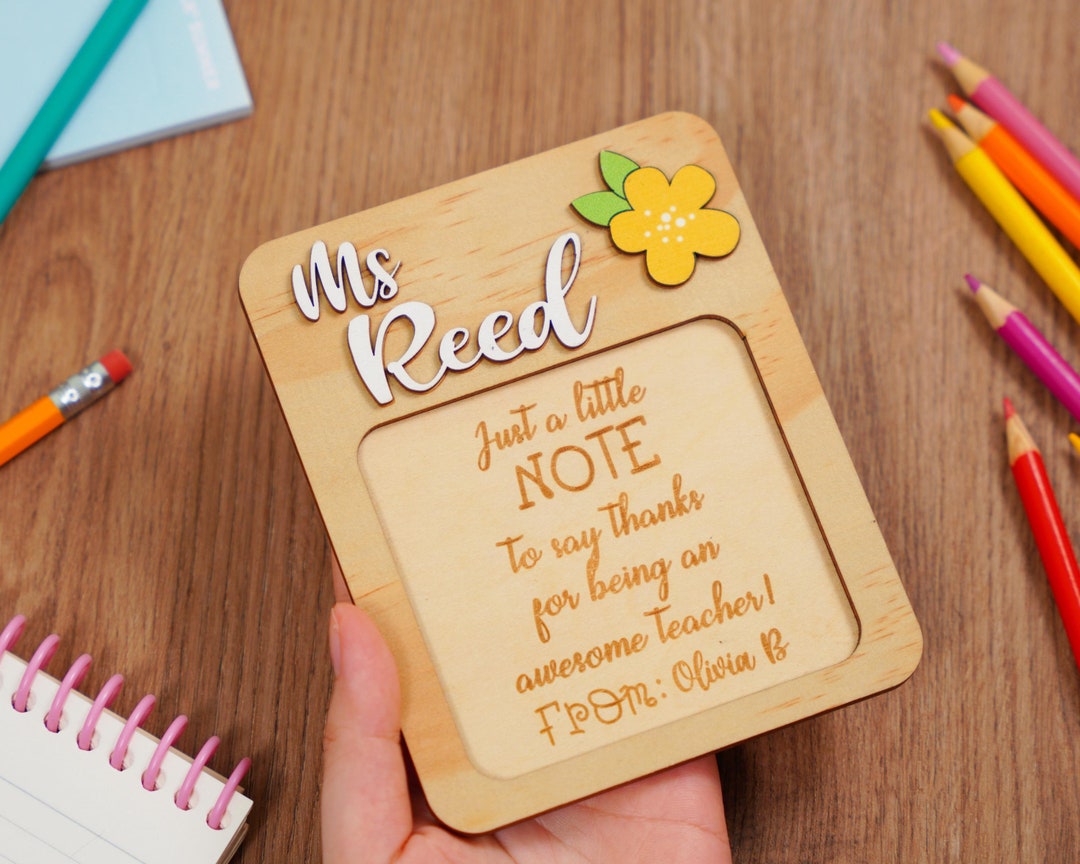 Ms
Reed
Just a little
NOTE
To say Thanks
for being an
awesome Teacher!
FROM: Olivia B